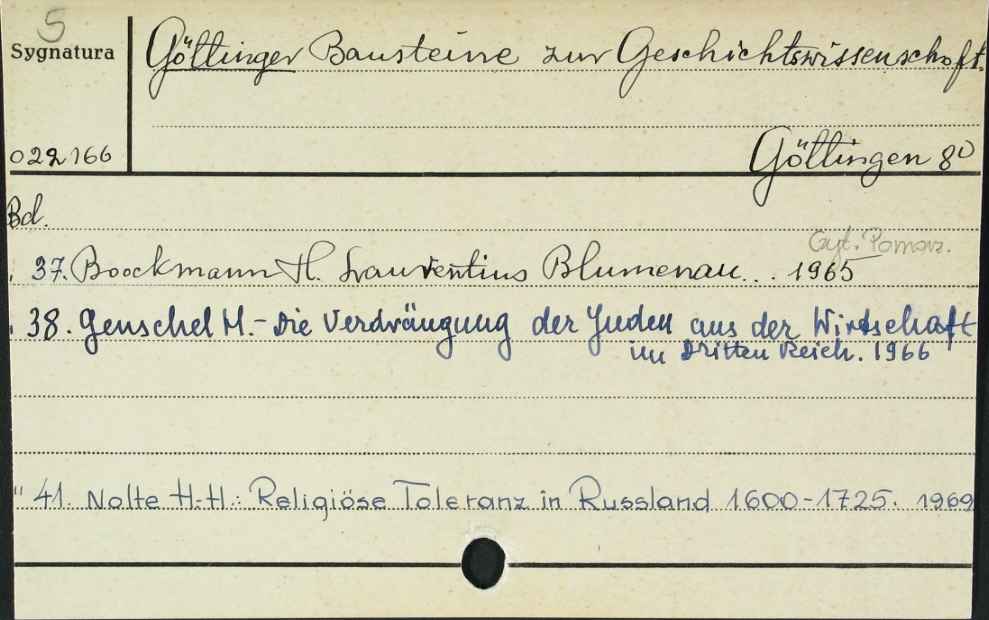 S
Sygnatura
Göttinger Bausteine zur Geschichtswissenschaft.
022166
Göttingen 8⁰
Bd.
Czyt. Pomorz.
37. Boockmann H. Laurentius Blumenau... 1965
38. Genschel H. - Die Verdrängung der Juden aus der Wirtschaft
im Dritten Reich. 1966
" 41. Nolte H.-H.: Religiöse Toleranz in Russland 1600-1725. 1969